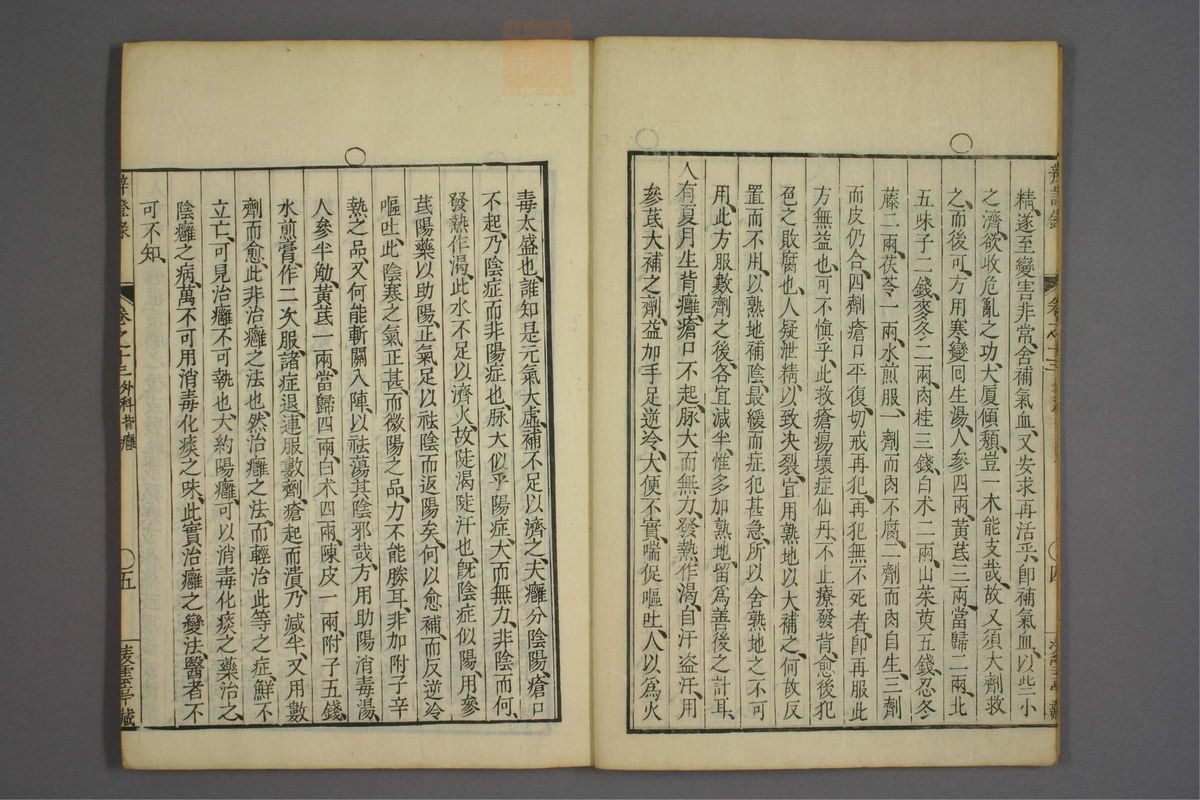 精遂至變害非常舍補氣血又安求再活乎卽補氣血以些小
之濟欲收危亂之功大厦傾頽豈一木能支哉故又須大劑救
之而後可方用寒變回生湯人參四兩黃芪三兩當歸二兩北
五味子二錢麥冬二兩肉桂三錢白术二兩山茱萸五錢忍冬
藤二兩茯苓一兩水煎服一劑而肉不腐二劑而肉自生三劑
而皮仍合四劑瘡口平復切戒再犯再犯無不死者卽再服此
方無益也可不愼乎此救瘡瘍壞症仙丹不止療發背愈後犯
色之敗腐也人疑泄精以致決裂宜用熟地以大補之何故反
置而不用以熟地補陰最緩而症犯甚急所以舍熟地之不可
用此方服數劑之後各宜減半惟多加熟地留爲善後之計耳
人有夏月生背癰瘡口不起脉大而無力發熱作渴自汗盜汗用
參芪大補之劑益加手足逆冷大便不實喘促嘔吐人以爲火
辨證錄
卷之十三
四
毒太盛也誰知是元氣大虛補不足以濟之夫癰分陰陽瘡口
不起乃陰症而非陽症也脉大似乎陽症大而無力非陰而何
發熱作渴此水不足以濟火故陡渴陡汗也旣陰症似陽用參
芪陽藥以助陽正氣足以祛陰而返陽矣何以愈補而反逆冷
嘔吐此陰寒之氣正甚而微陽之品力不能勝耳非加附子辛
熱之品又何能斬關入陣以祛蕩其陰邪哉方用助陽消毒湯
人參半觔黃芪一兩當歸四兩白术四兩陳皮一兩附子五錢
水煎膏作二次服諸症退連服數劑瘡起而潰乃減半又用數
劑而愈此非治癰之法也然治癰之法而輕治此等之症鮮不
立亡可見治癰不可執也大約陽癰可以消毒化痰之藥治之
陰癰之病萬不可用消毒化痰之味此實治癰之變法醫者不
可不知
辨證錄
卷之十三外科背癰
五
凌雲亭藏